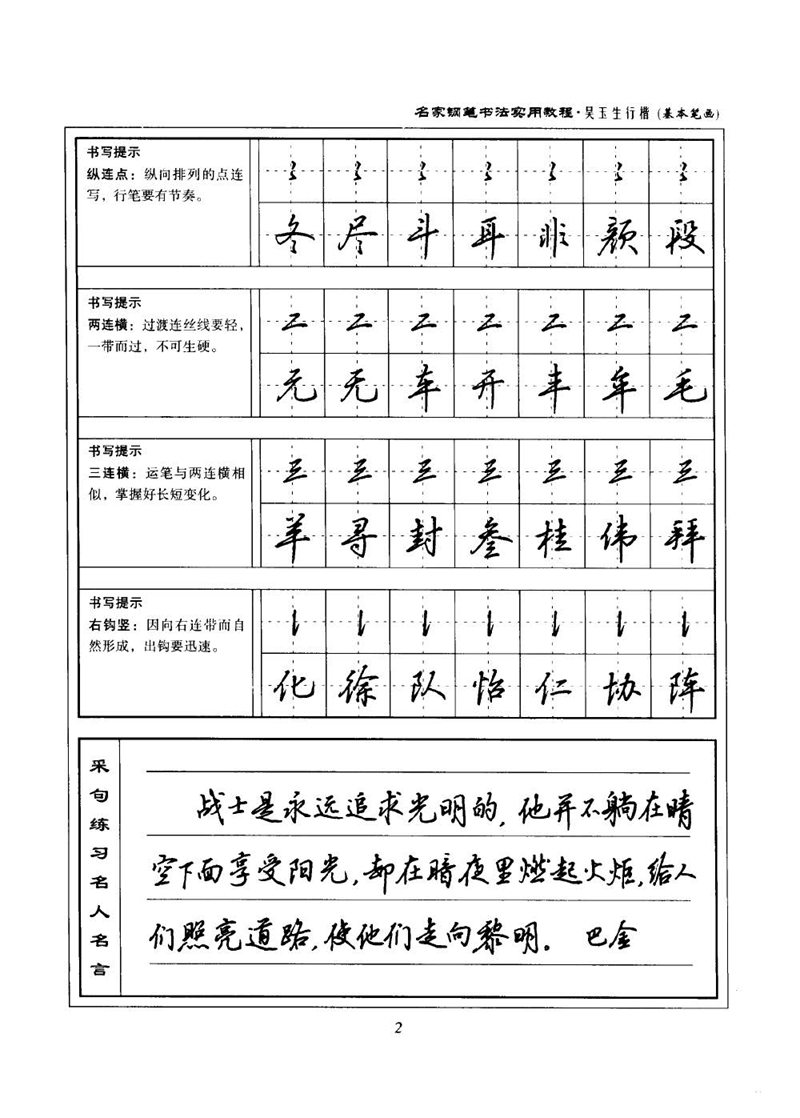 名家钢笔书法实用教程·吴玉生行楷(基本笔画)
书写提示
纵连点：纵向排列的点连
写，行笔要有节奏。
冬尽斗耳非颜段
书写提示
两连横：过渡连丝线要轻，
一带而过，不可生硬。
元无车开丰年毛
书写提示
三连横：运笔与两连横相
似，掌握好长短变化。
羊寻封叁桂伟拜
书写提示
右钩竖：因向右连带而自
然形成，出钩要迅速。
化徐队怡仁协阵
采句练习名人名言
战士是永远追求光明的，他并不躺在晴
空下面享受阳光，却在暗夜里燃起火炬，给人
们照亮道路，使他们走向黎明。 巴金
2